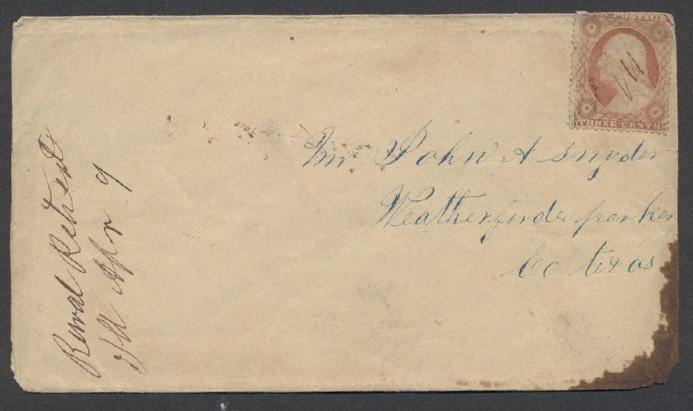 POSTAGE
THREE CENTS
Mr John A Snyder
Weatherford parker
Co texas
Rural Retreat
Ill Apr 9